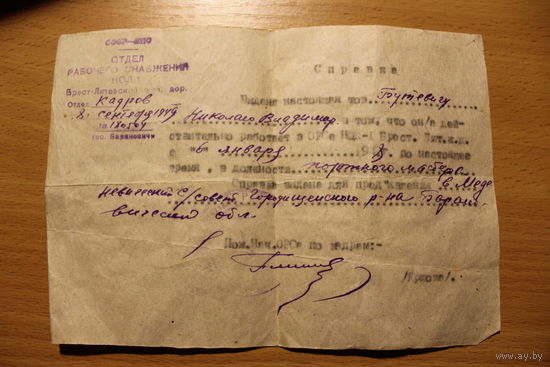 СССР—НКПС
ОТДЕЛ
РАБОЧЕГО СНАБЖЕНИЯ
НОД 1
Брест-Литовской жел. дор.
Отдел Кадров
8 сентября 1949
№ 180504
гор. Барановичи
Справка
Выдана настоящая тов. Бутевичу
Николаю Владимир. в том, что он/а дей-
ствительно работает в ОРСе НОД-I Брест. Лит.ж.д.
с 6 января 194 8 г. По настоящее
время, в должности портного мастера
Справка выдана для пред'явления в Меде
невичский с/совет Городищенского р-на Баран
вичской обл.
Пом.Нач.ОРСа по кадрам:-
/Ершова/.
www.ay.by